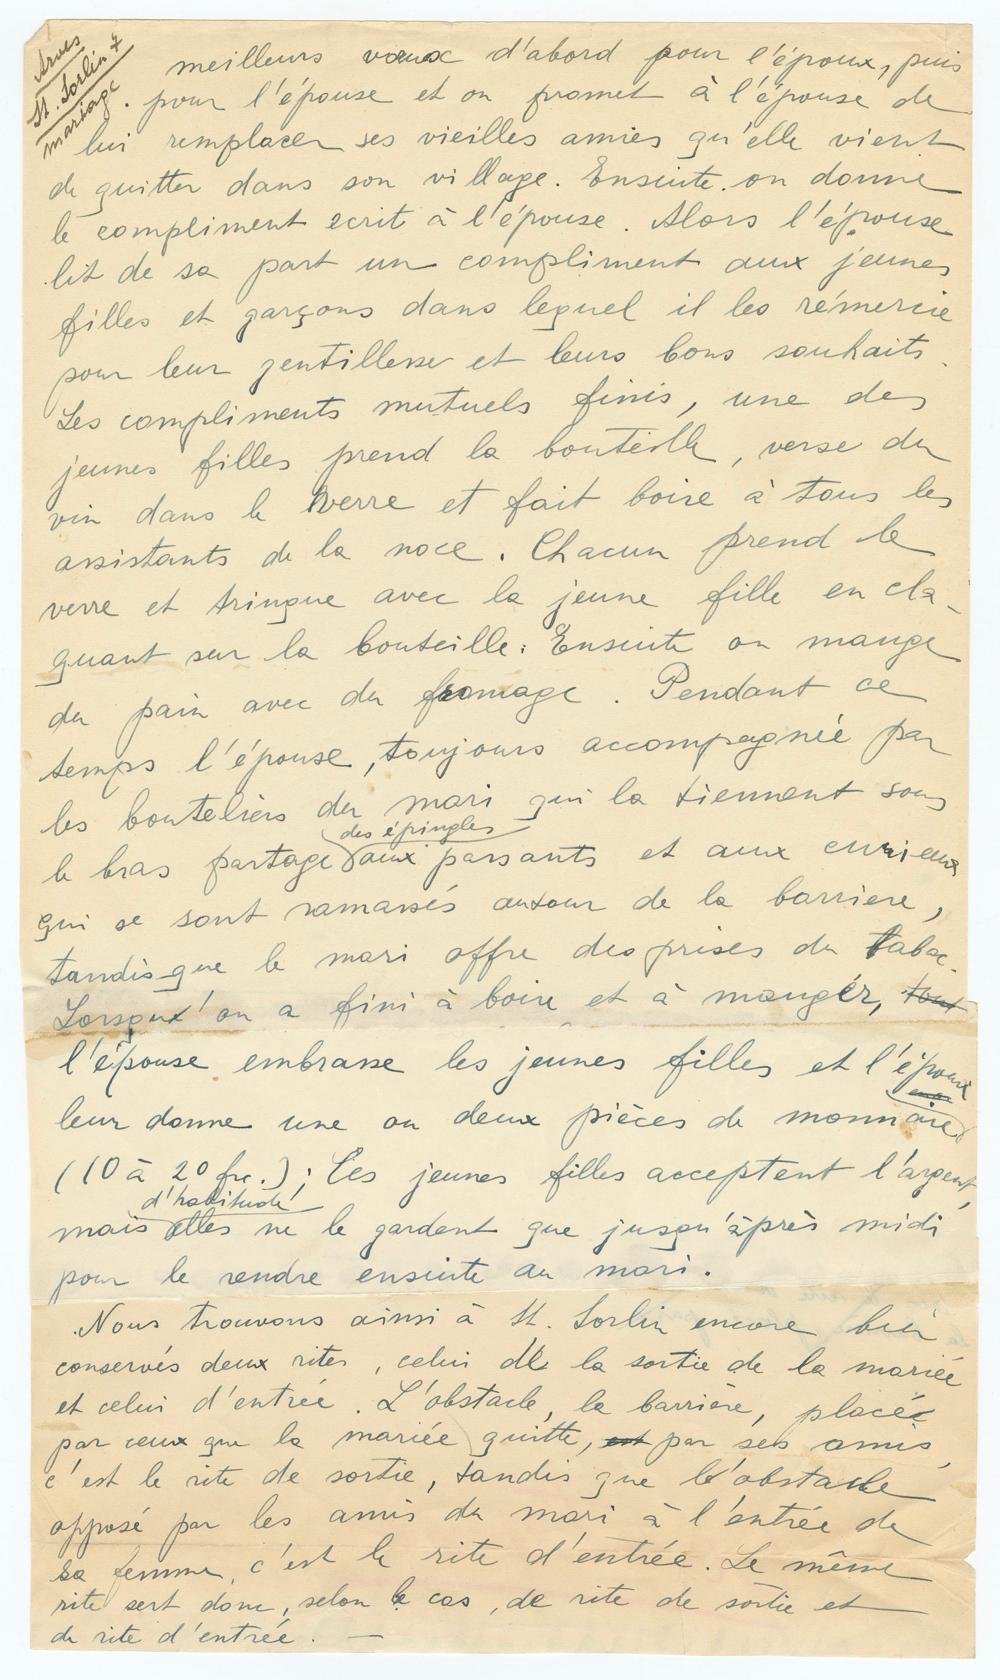 Arves
St. Sorlin 7
mariage.
meilleurs voeux d'abord pour l'époux, puis
pour l'épouse et on promet à l'épouse de
lui remplacer ses vieilles amies qu'elle vient
de quitter dans son village. Ensuite on donne
le compliment ecrit à l'épouse. Alors l'épouse
lit de sa part un compliment aux jeunes
filles et garçons dans lequel il les rémercie
pour leur gentillesse et leurs bons souhaits.
Les compliments mutuels finis, une des
jeunes filles prend la bouteille, verse du
vin dans le verre et fait boire à tous les
assistants de la noce. Chacun prend le
verre et tringue avec la jeune fille en cla-
quant sur la bouteille. Ensuite on mange
du pain avec du fromage. Pendant ce
temps l'épouse, toujours accompagnée par
les bouteliers du mari qui la tiennent sous
des épingles
le bras partage aux passants et aux curieux
qui se sont ramassés autour de la barriere,
tandis que le mari offre des prises du tabac.
Lorsqu'on a fini à boire et à manger, tout
l'épouse embrasse les jeunes filles et l'époux
leur donne une ou deux pièces de monnaie
(10 à 20 frc.); Les jeunes filles acceptent l'argent,
d'habitude
mais elles ne le gardent que jusqu'àprès midi
pour le rendre ensuite au mari.
Nous trouvons ainsi à St. Sorlin encore bien
conservés deux rites, celui de la sortie de la mariée
et celui d'entrée. L'obstacle, la barrière, placée
par ceux que la mariée quitte, est par ses amis,
c'est le rite de sortie, tandis que l'obstacle
opposé par les amis du mari à l'entrée de
sa femme, c'est le rite d'entrée. Le même
rite sert donc, selon le cas, de rite de sortie et
de rite d'entrée. —